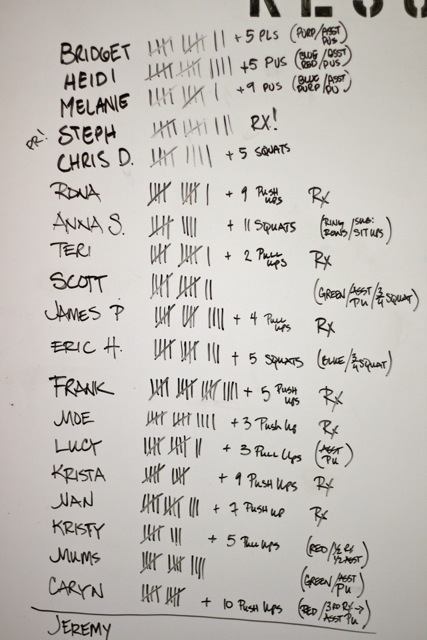 BRIDGET + 5 PLS (PURP/ASST PUS)
HEIDI + 5 PUS (BLUE/ASST RED/PUS)
MELANIE + 9 PUS (BLUE/ASST PURP/PU)
PR! STEPH RX!
CHRIS D. + 5 SQUATS
RONA + 9 PUSH UPS RX
ANNA S. + 11 SQUATS (RING ROWS/SUB: SIT UPS)
TERI + 2 PULL UPS RX
SCOTT (GREEN/ASST PU/3/4 SQUAT)
JAMES P + 4 PULL UPS RX
ERIC H. + 5 SQUATS (BLUE/3/4 SQUAT)
FRANK + 5 PUSH UPS RX
MOE + 3 PUSH UP RX
LUCY + 3 PULL UPS (ASST PU)
KRISTA + 9 PUSH UPS RX
NAN + 7 PUSH UP RX
KRISTY + 5 PULL UPS (RED/1/2 RX 1/2 ASST)
MUMS (GREEN/ASST PU)
CARYN + 10 PUSH UPS (RED/3 RD RX → ASST PU)
JEREMY